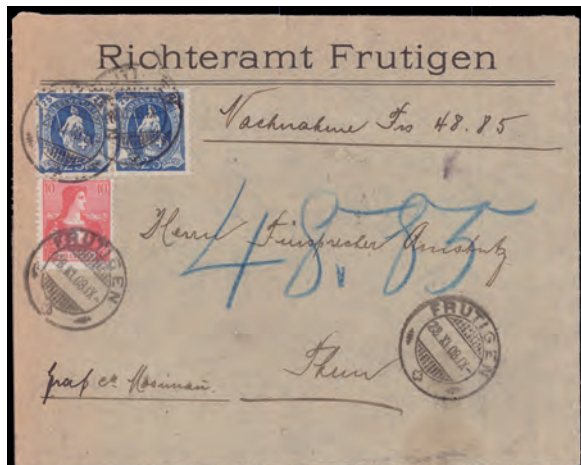 Richteramt Frutigen
25 25
Nachnahme Frs 48.85
10 10
Herrn Fürsprecher Amstutz
48.85
FRUTIGEN
28.XI.08.IX-
FRUTIGEN
28.XI.08.IX-
Thun
Graf ca